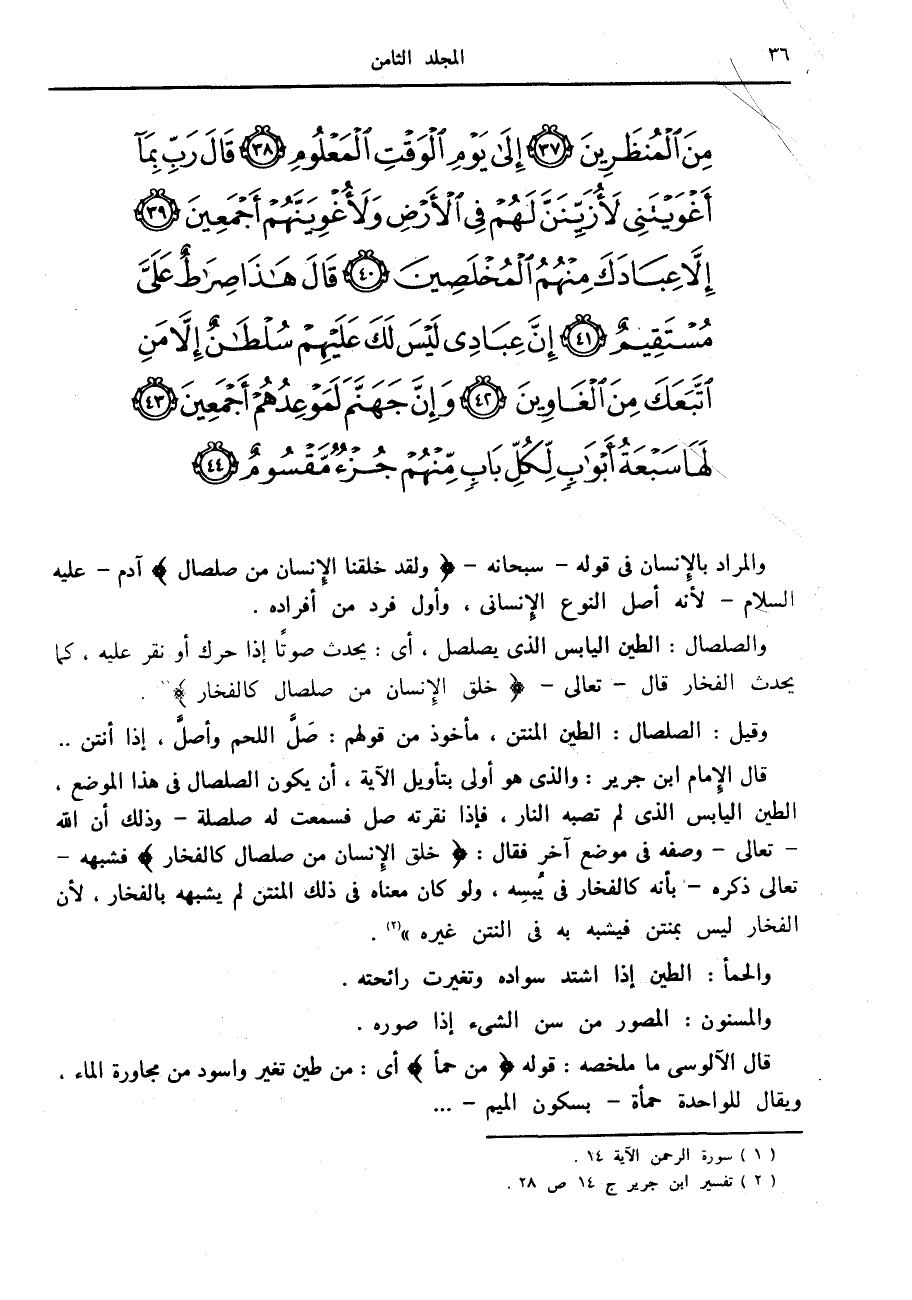 ٣٦
المجلد الثامن
مِنَ ٱلْمُنظَرِينَ ﴿٣٧﴾ إِلَىٰ يَوْمِ ٱلْوَقْتِ ٱلْمَعْلُومِ ﴿٣٨﴾ قَالَ رَبِّ بِمَآ
أَغْوَيْتَنِى لَأُزَيِّنَنَّ لَهُمْ فِى ٱلْأَرْضِ وَلَأُغْوِيَنَّهُمْ أَجْمَعِينَ ﴿٣٩﴾
إِلَّا عِبَادَكَ مِنْهُمُ ٱلْمُخْلَصِينَ ﴿٤٠﴾ قَالَ هَٰذَا صِرَٰطٌ عَلَىَّ
مُسْتَقِيمٌ ﴿٤١﴾ إِنَّ عِبَادِى لَيْسَ لَكَ عَلَيْهِمْ سُلْطَٰنٌ إِلَّا مَنِ
ٱتَّبَعَكَ مِنَ ٱلْغَاوِينَ ﴿٤٢﴾ وَإِنَّ جَهَنَّمَ لَمَوْعِدُهُمْ أَجْمَعِينَ ﴿٤٣﴾
لَهَا سَبْعَةُ أَبْوَٰبٍ لِّكُلِّ بَابٍ مِّنْهُمْ جُزْءٌ مَّقْسُومٌ ﴿٤٤﴾
والمراد بالإنسان فى قوله – سبحانه – ﴿ ولقد خلقنا الإنسان من صلصال ﴾ آدم – عليه
السلام – لأنه أصل النوع الإنسانى ، وأول فرد من أفراده .
والصلصال : الطين اليابس الذى يصلصل ، أى : يحدث صوتًا إذا حرك أو نقر عليه ، كما
يحدث الفخار قال – تعالى – ﴿ خلق الإنسان من صلصال كالفخار ﴾<sup>(١)</sup> .
وقيل : الصلصال : الطين المنتن ، مأخوذ من قولهم : صَلَّ اللحم وأصلَّ ، إذا أنتن ..
قال الإمام ابن جرير : والذى هو أولى بتأويل الآية ، أن يكون الصلصال فى هذا الموضع ،
الطين اليابس الذى لم تصبه النار ، فإذا نقرته صل فسمعت له صلصلة – وذلك أن الله
– تعالى – وصفه فى موضع آخر فقال : ﴿ خلق الإنسان من صلصال كالفخار ﴾ فشبهه –
تعالى ذكره – بأنه كالفخار فى يُبسِه ، ولو كان معناه فى ذلك المنتن لم يشبهه بالفخار ، لأن
الفخار ليس بمنتن فيشبه به فى النتن غيره »<sup>(٢)</sup> .
والحمأ : الطين إذا اشتد سواده وتغيرت رائحته .
والمسنون : المصور من سن الشىء إذا صوره .
قال الآلوسى ما ملخصه : قوله ﴿ من حمأ ﴾ أى : من طين تغير واسود من مجاورة الماء ،
ويقال للواحدة حمأة – بسكون الميم – ...
( ١ ) سورة الرحمن الآية ١٤ .
( ٢ ) تفسير ابن جرير ج ١٤ ص ٢٨ .